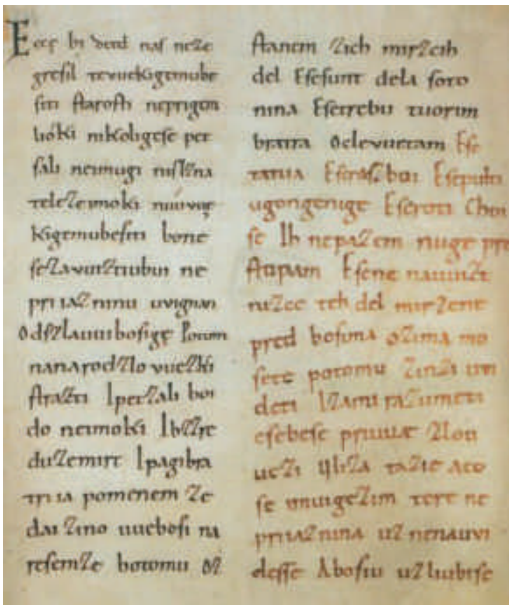 Ecce bi detd naſ neze
greſil tevuekigemube
ſiti ſtaroſti neprigem
lióki nikoligeſe pet
ſali neimugi niſlzna
telezeimoki nuúvuę
kigemubeſiti bone
ſezavuiztiubui ne
priiazninu uvignan
Odſzlauuiboſige Potom
nanarodzlovuezki
ſtrazti Ipetzali boi
do neimoki Ibzzre
duzemirt Ipagibra
triia pomenem ze
dai zino uueboſi na
reſemze botomu oz
ſtanem zich mirzcih
del Eſeſunt dela ſoto
nina Eſetrebu tuorim
bratra Oclevuetam Eſe
tatua Eſeraſboi Eſepulti
ugongenige Eſeroti Choi
ſe Ih nepazem nuge pre
ſtopam Eſene nauuizt
nizce teh del mirzene
pred boſima ozima mo
ſete potomu zinzi uvi
deti Izami razumeti
eſebeſe priuuæ zlou
uezi Uliza tazie aco
ſe imuigezim tere ne
priiaznina uznenauvi
deſſe Aboſiu uzliubiſe